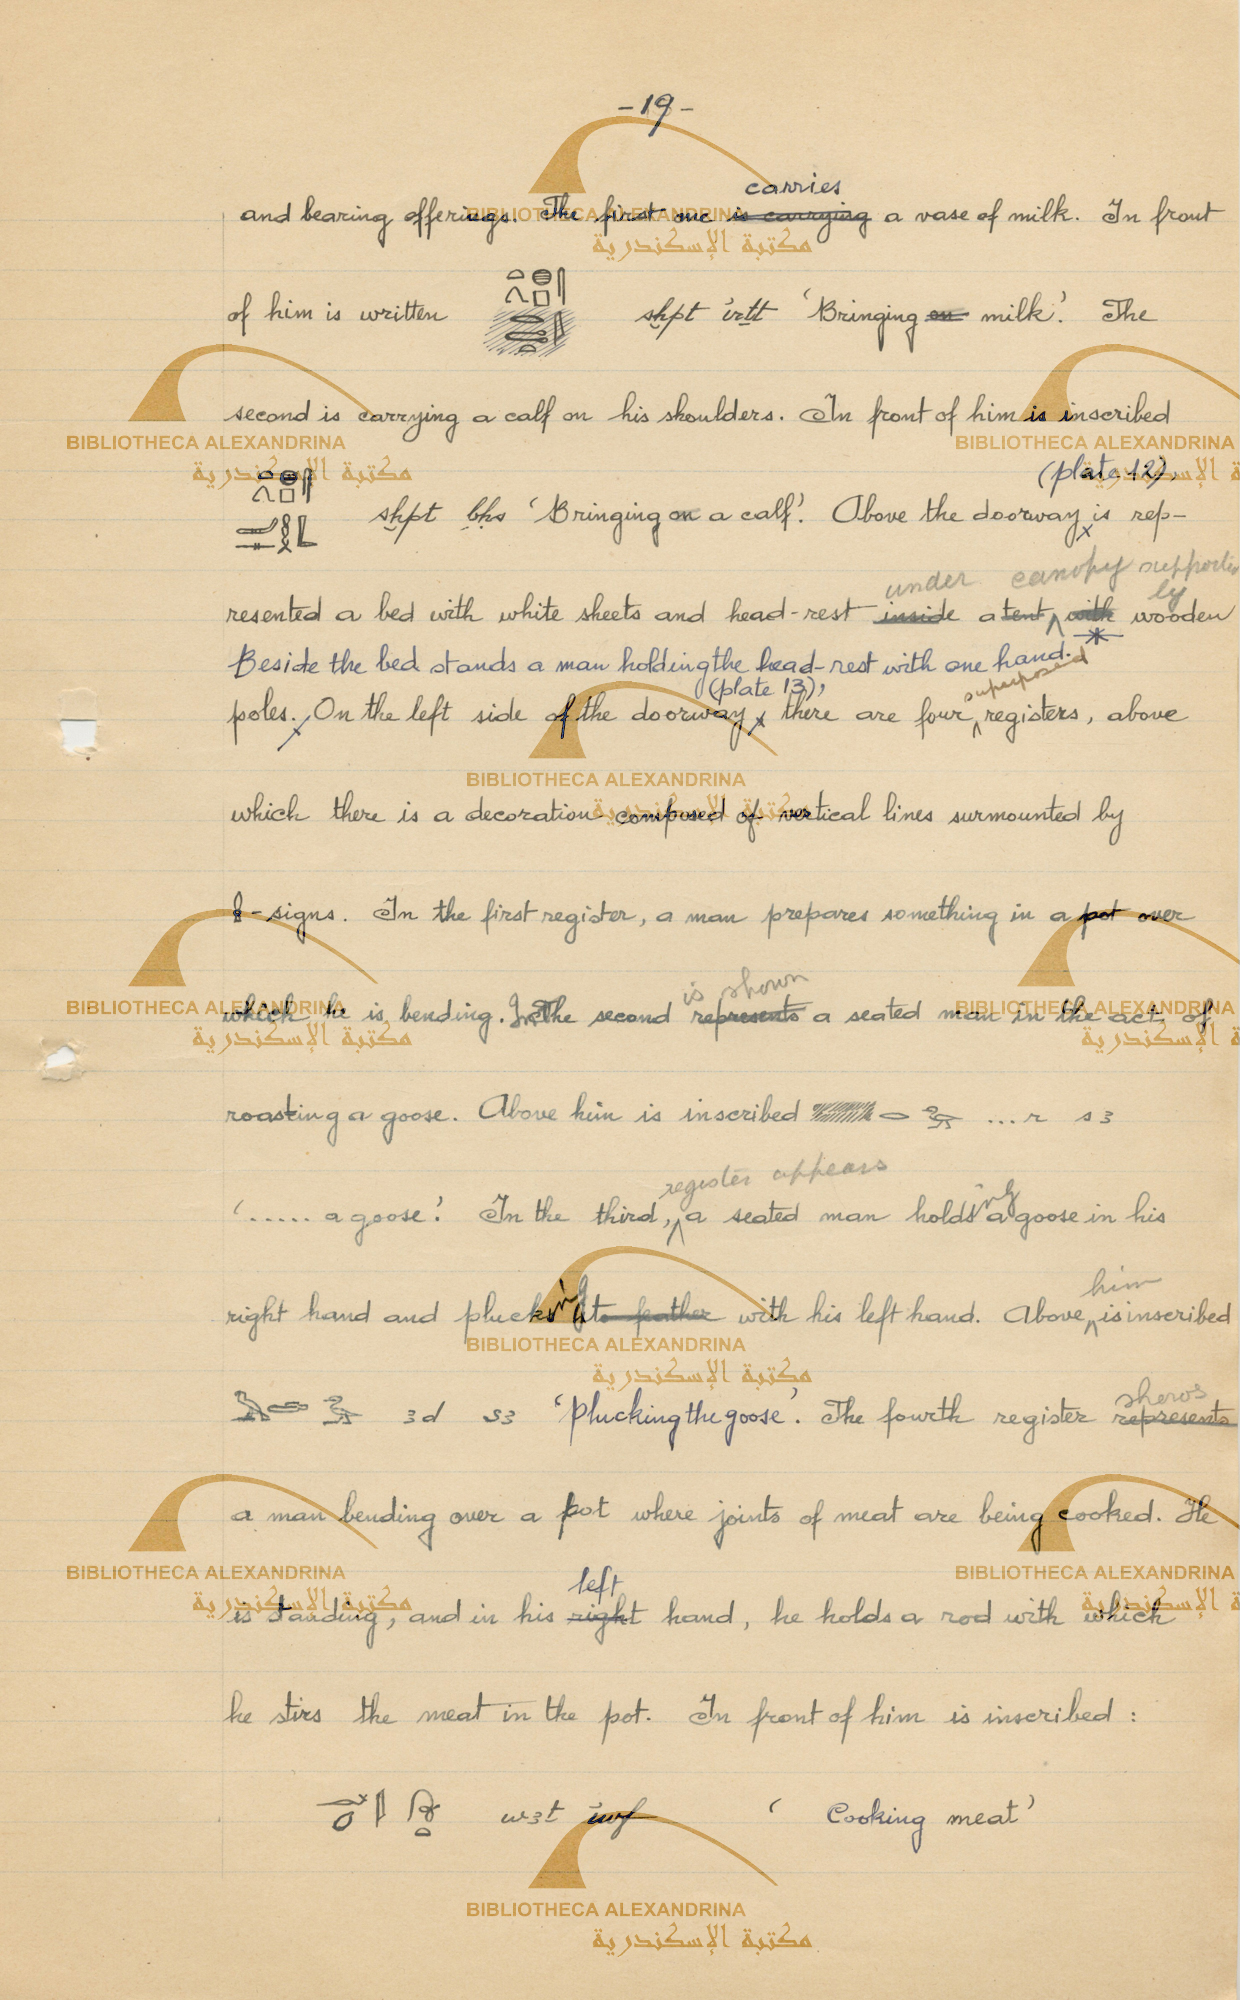 -19-
carries
and bearing offerings. The first one is carrying a vase of milk. In front
of him is written sḫpt irtt 'Bringing on milk'. The
second is carrying a calf on his shoulders. In front of him is inscribed
(plate 12),
sḫpt bḥs 'Bringing on a calf'. Above the doorway x is rep-
under canopy supported by
resented a bed with white sheets and head-rest inside a tent with wooden
Beside the bed stands a man holding the head-rest with one hand.
(plate 13), superposed
poles. On the left side of the doorway x there are four registers, above
which there is a decoration composed of vertical lines surmounted by
-signs. In the first register, a man prepares something in a pot over
is shown
which he is bending. In The second represents a seated man in the act of
roasting a goose. Above him is inscribed ...r sꜣ
register appears ing
'...... a goose'. In the third, a seated man holds a goose in his
ing him
right hand and plucks its feather with his left hand. Above is inscribed
shows
ꜣd sꜣ 'Plucking the goose'. The fourth register represents
a man bending over a pot where joints of meat are being cooked. He
left
is standing, and in his right hand, he holds a rod with which
he stirs the meat in the pot. In front of him is inscribed :
wꜣt iwf ' Cooking meat'
BIBLIOTHECA ALEXANDRINA
مكتبة الإسكندرية